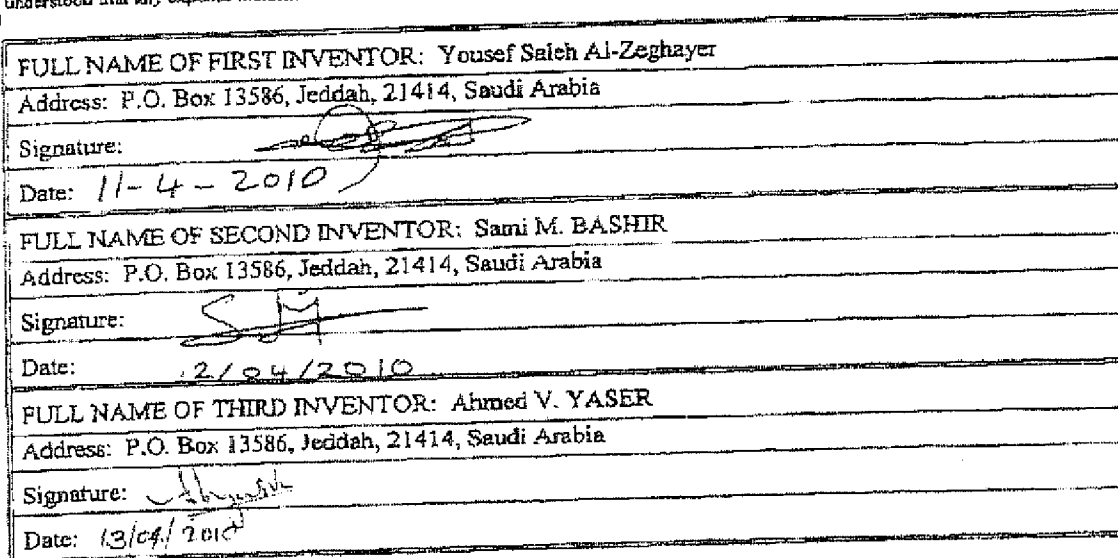 understood that any
FULL NAME OF FIRST INVENTOR: Yousef Saleh Al-Zeghayer
Address: P.O. Box 13586, Jeddah, 21414, Saudi Arabia
Signature:
Date: 11-4-2010
FULL NAME OF SECOND INVENTOR: Sami M. BASHIR
Address: P.O. Box 13586, Jeddah, 21414, Saudi Arabia
Signature: SM
Date: 12/04/2010
FULL NAME OF THIRD INVENTOR: Ahmed V. YASER
Address: P.O. Box 13586, Jeddah, 21414, Saudi Arabia
Signature:
Date: 13/04/2010